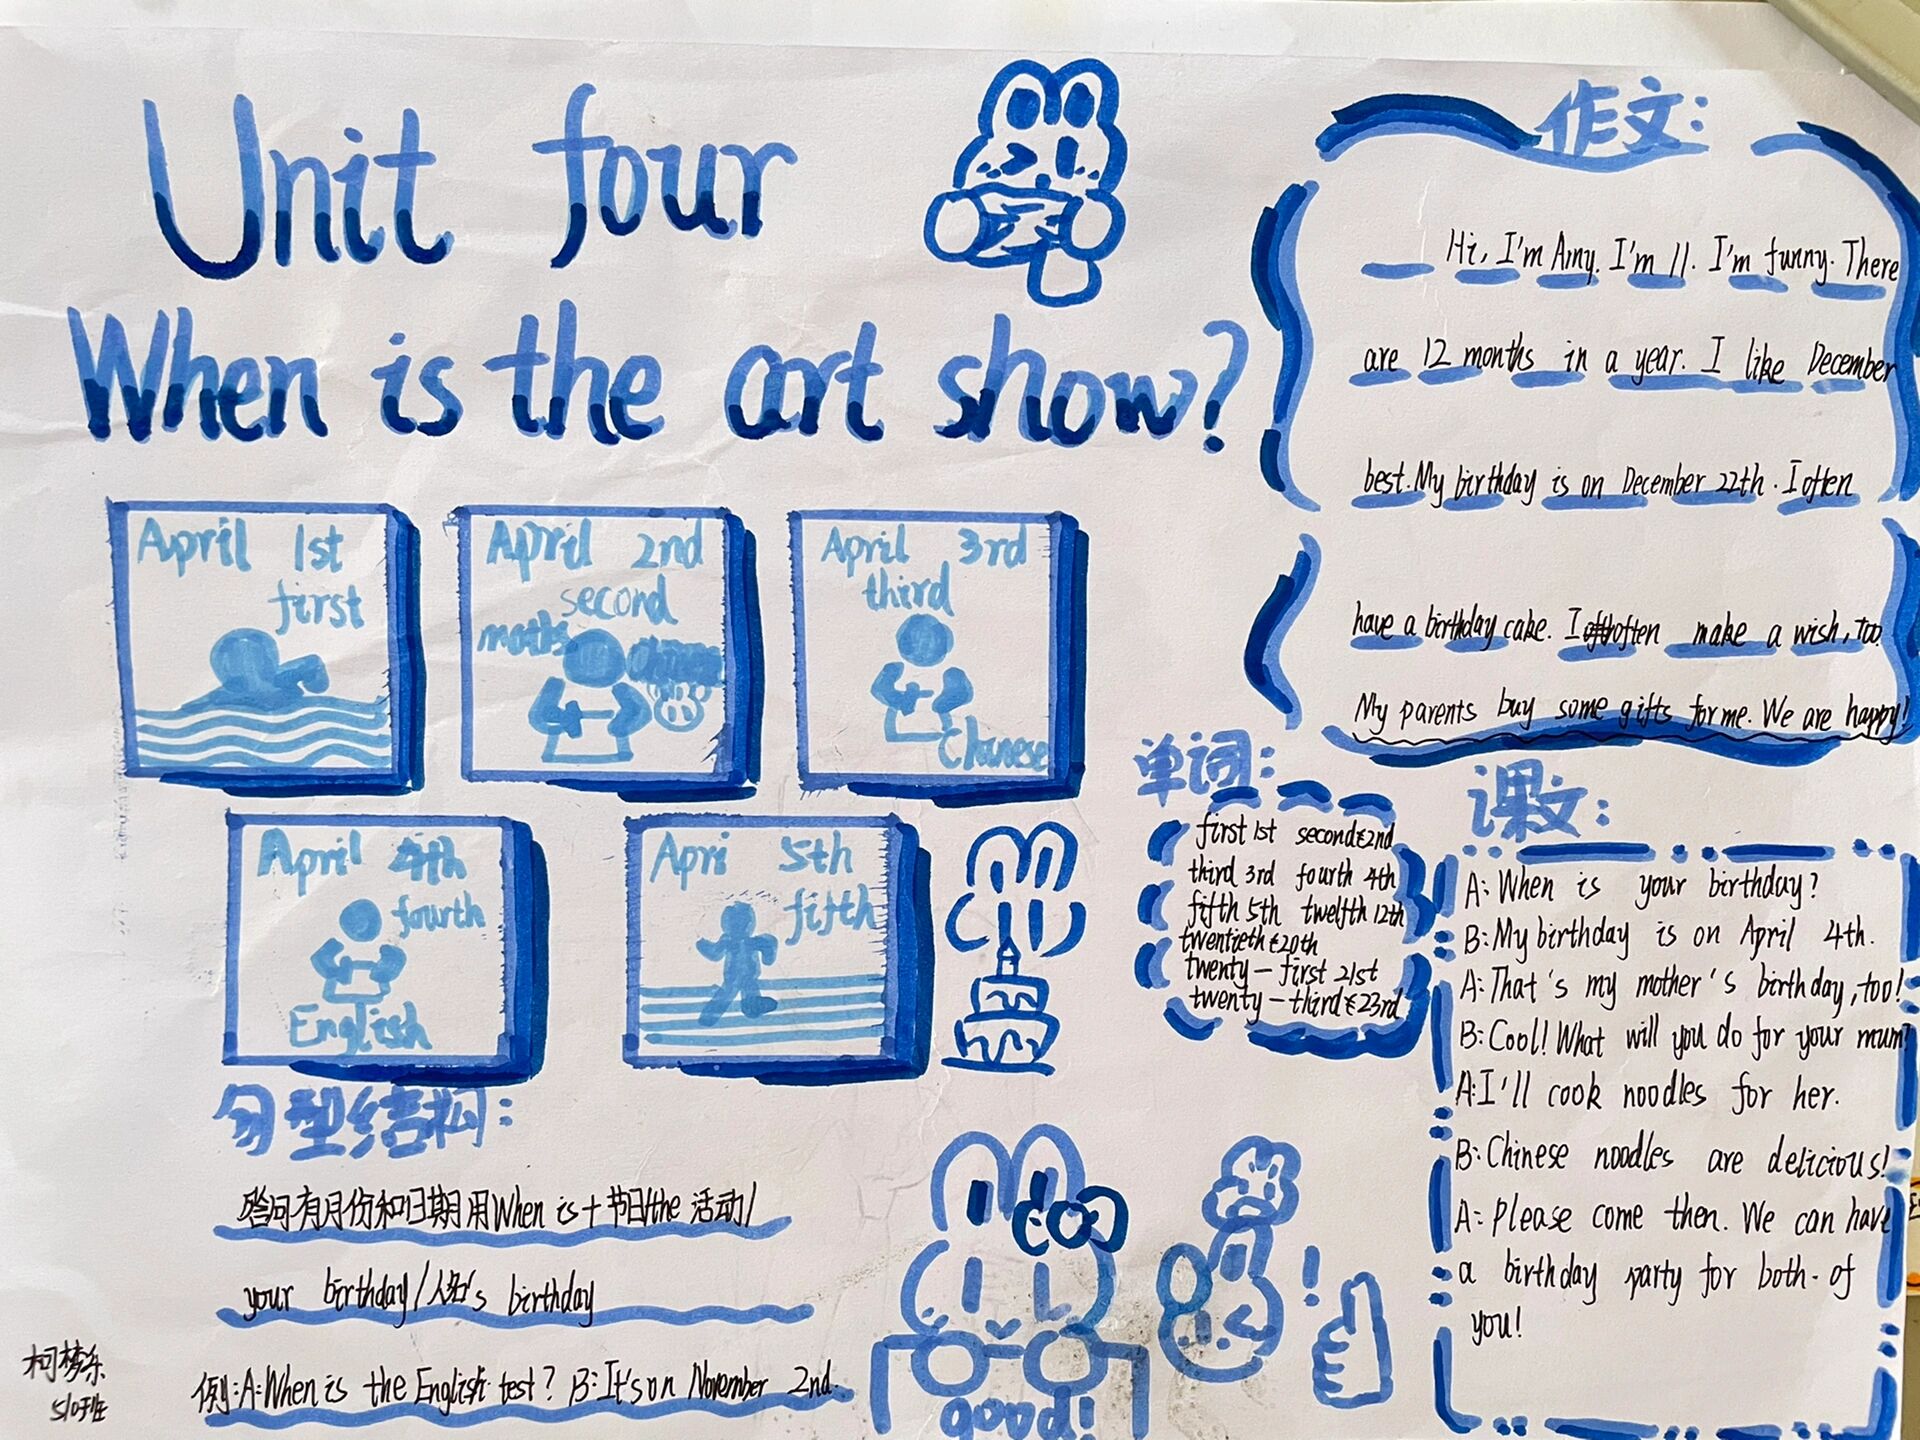 Unit four
When is the art show?
April 1st
first
April 2nd
second
maths
April 3rd
third
Chinese
April 4th
fourth
English
Apri 5th
fifth
句型结构:
询问有月份和日期用When is+节日/the 活动/
your birthday/人名's birthday
例:A:When is the English test? B:It's on November 2nd.
good!
作文:
Hi, I'm Amy. I'm 11. I'm funny. There
are 12 months in a year. I like December
best. My birthday is on December 22th. I often
have a birthday cake. I often make a wish, too.
My parents buy some gifts for me. We are happy!
单词:
first 1st second 2nd
third 3rd fourth 4th
fifth 5th twelfth 12th
twentieth 20th
twenty-first 21st
twenty-third 23rd
课文:
A: When is your birthday?
B: My birthday is on April 4th.
A: That's my mother's birthday, too!
B: Cool! What will you do for your mum?
A: I'll cook noodles for her.
B: Chinese noodles are delicious!
A: Please come then. We can have
a birthday party for both-of
you!